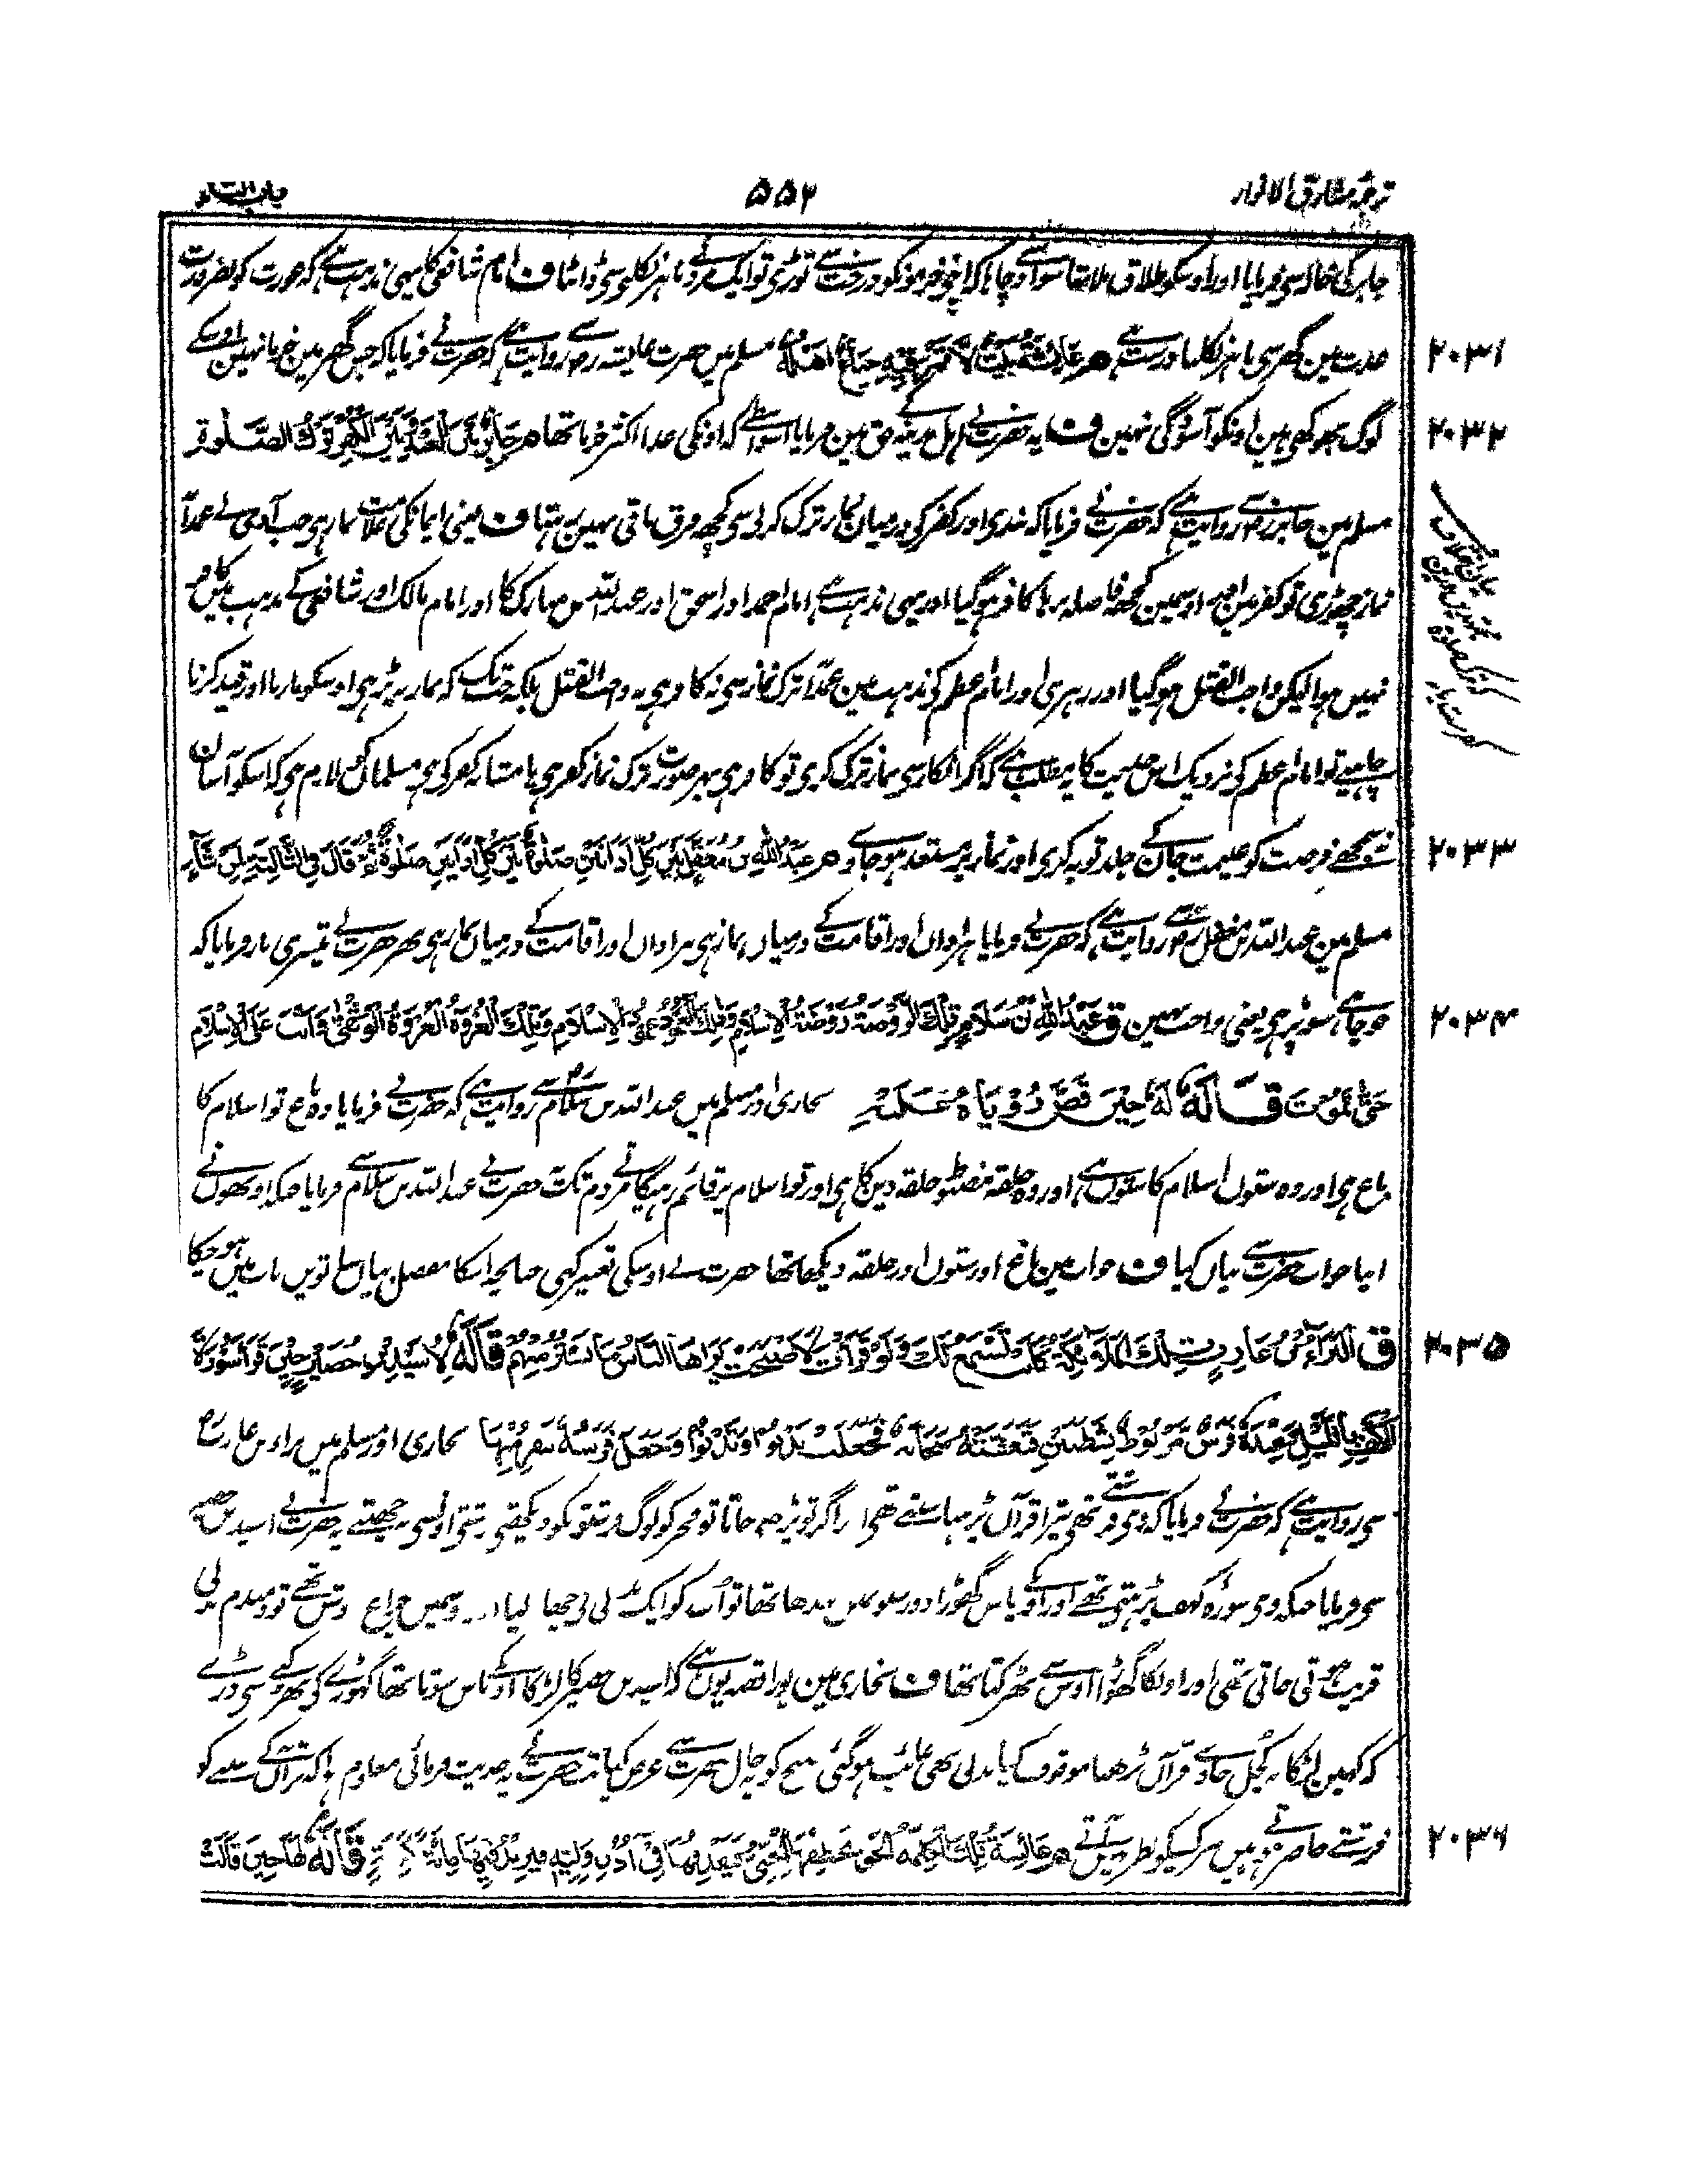 ترجمہ مشارق الانوار
۵۵۲
جابر کی خالہ سی فرمایا اور اوسکو طلاق ملا تھا سو اسنے چاہا کہ اپنی خرمونکو درخت سے توڑی تو ایک مرد نے باہر نکلنی سی ڈانٹا ف امام شافعی کا یہی مذہب ہے کہ عورت کو بضرورت
عدت مین گھر سی باہر نکلنا درست ہے م عائشة بيت لا تمر فيه جياع اهله مسلم میں حضرت عایشہ رض سے روایت ہے کہ حضرت نے فرمایا کہ جس گھر مین خرما نہین اوسکے ۲۰۳۱
لوگ بھوکھی ہین اونکو آسودگی نہین ف یہ حضرت نے اہل مدینہ کے حق مین فرمایا اسواسطے کہ اونکی غذا اکثر خرما تھا م جابر بين العبد وبين الكفر ترك الصلوة ۲۰۳۲
مسلم مین جابر رض سے روایت ہے کہ حضرت نے فرمایا کہ بندی اور کفر کی درمیان نماز ترک کرنی سی کچھ فرق باقی نہین رہتا ف یعنی ایمانکی علامت نماز ہی جب آدمی نے عمداً
نماز چھوڑی تو کفر مین اور اوسمین کچھ فاصلہ نرہا کافر ہو گیا اور یہی مذہب ہے امام احمد اور اسحق اور عبد اللہ بن مبارک کا اور امام مالک اور شافعی کے مذہب مین کافر
نہیں ہوا لیکن واجب القتل ہو گیا اور زہری اور امام اعظم کی مذہب مین عمداً ترک نماز سی نہ کافر ہی نہ واجب القتل بلکہ جب تک کہ نماز نہ پڑہی اوسکو مارنا اور قید کرنا
چاہیے تو امام اعظم کی نزدیک اس حدیث کا یہ مطلب ہے کہ اگر انکار سی نماز ترک کری تو کافر ہی بہر صورت ترک نماز کفر ہی یا مشابہ کفر کی ہی مسلمان کو لازم ہی کہ اسکو آسان
نسمجھے فرصت کو غنیمت جان کے جلد توبہ کری اور نماز پر مستعد ہو جاوے م عبد الله بن مغفل بين كل اذانين صلوة بين كل اذانين صلوة ثم قال في الثالثة لمن شاء ۲۰۳۳
مسلم مین عبد اللہ بن مغفل رض سے روایت ہے کہ حضرت نے فرمایا ہر اذان اور اقامت کے درمیان نماز ہی ہر اذان اور اقامت کے درمیان نماز ہی پھر حضرت نے تیسری بار فرمایا کہ
جو چاہے سو پڑہی یعنی واجب نہین ق عبد الله بن سلام تلك الروضة روضة الاسلام وذلك العمود عمود الاسلام وتلك العروة العروة الوثقى وانت على الاسلام ۲۰۳۴
حتى تموت قاله له حين قص رؤياه عليه بخاری اور مسلم میں عبد اللہ بن سلام رض سے روایت ہے کہ حضرت نے فرمایا وہ باغ تو اسلام کا
باغ ہی اور وہ ستون اسلام کا ستون ہے اور وہ حلقہ مضبوط حلقہ دین کا ہی اور تو اسلام پر قائم رہیگا مرتے دم تک حضرت نے عبد اللہ بن سلام سے فرمایا جبکہ اونھوں نے
اپنا خواب حضرت سے بیان کیا ف خواب مین باغ اور ستون اور حلقہ دیکھا تھا حضرت نے اوسکی تعبیر کہی چنانچہ اسکا مفصل بیان ساتویں باب میں ہو چکا
ق البراء بن عازب تلك الملائكة كانت تستمع لك ولو قرأت لاصبحت يراها الناس ما تستتر منهم قاله لاسيد بن حضير حين قرأ سورة ۲۰۳۵
الكهف بالليل وعنده فرس مربوط بشطنين فتغشته سحابة فجعلت تدنو وتدنو وجعل فرسه ينفر منها بخاری اور مسلم میں براء بن عازب رض
سی روایت ہے کہ حضرت نے فرمایا کہ وی فرشتے تھی تیرا قرآن پڑہنا سنتے تھی اور اگر تو پڑھے جاتا تو فجر کو لوگ فرشتونکو دیکھتی رہتی اونسی نہ چھپتے یہ حضرت نے اسید بن حضیر
سی فرمایا جبکہ وی سورہ کہف پڑہتی تھے اور اونکے پاس گھوڑا دو رسیوں میں بندھا تھا تو اُن کو ایک بدلی نے چھپا لیا
قریب ہوتی جاتی تھی اور اونکا گھوڑا اوس سے بھڑکتا تھا ف بخاری مین پورا قصہ یوں ہے کہ اسید بن حضیر کا لڑکا اونکے پاس سوتا تھا گھوڑے کی بھڑکنے سی ڈرے
کہ کہین لڑکا نہ کچل جاوے قرآن پڑھنا موقوف کیا بدلی بھی غائب ہو گئی صبح کو یہ حال حضرت سے عرض کیا تب حضرت نے یہ حدیث فرمائی معلوم ہوا کہ قرآن کے سننے کو
فرشتے حاضر ہوتے ہیں ہر کسیکو نظر نہیں آتے م عائشة تلك الكلمة الحق يخطفها الجني فيقذفها في اذن وليه ويزيد فيها مائة كذبة قاله لها حين قالت ۲۰۳۶